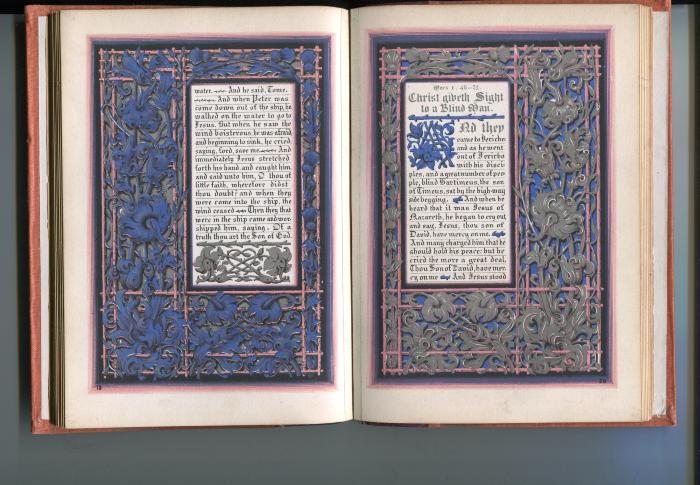 water. And he said, Come.
And when Peter was
come down out of the ship, he
walked on the water to go to
Jesus. But when he saw the
wind boisterous, he was afraid,
and beginning to sink, he cried,
saying, Lord, save me. And
immediately Jesus stretched
forth his hand, and caught him,
and said unto him, O thou of
little faith, wherefore didst
thou doubt? and when they
were come into the ship, the
wind ceased Then they that
were in the ship came and wor-
shipped him, saying, Of a
truth thou art the Son of God.
Marc x. 46-52.
Christ giveth Sight
to a Blind Man.
And they
came to Jericho:
and as he went
out of Jericho
with his disci-
ples, and a great number of peo-
ple, blind Bartimeus, the son
of Timeus, sat by the high-way
side begging. And when he
heard that it was Jesus of
Nazareth, he began to cry out,
and say, Jesus, thou son of
David, have mercy on me.
And many charged him that he
should hold his peace: but he
cried the more a great deal,
Thou Son of David, have mer-
cy on me And Jesus stood